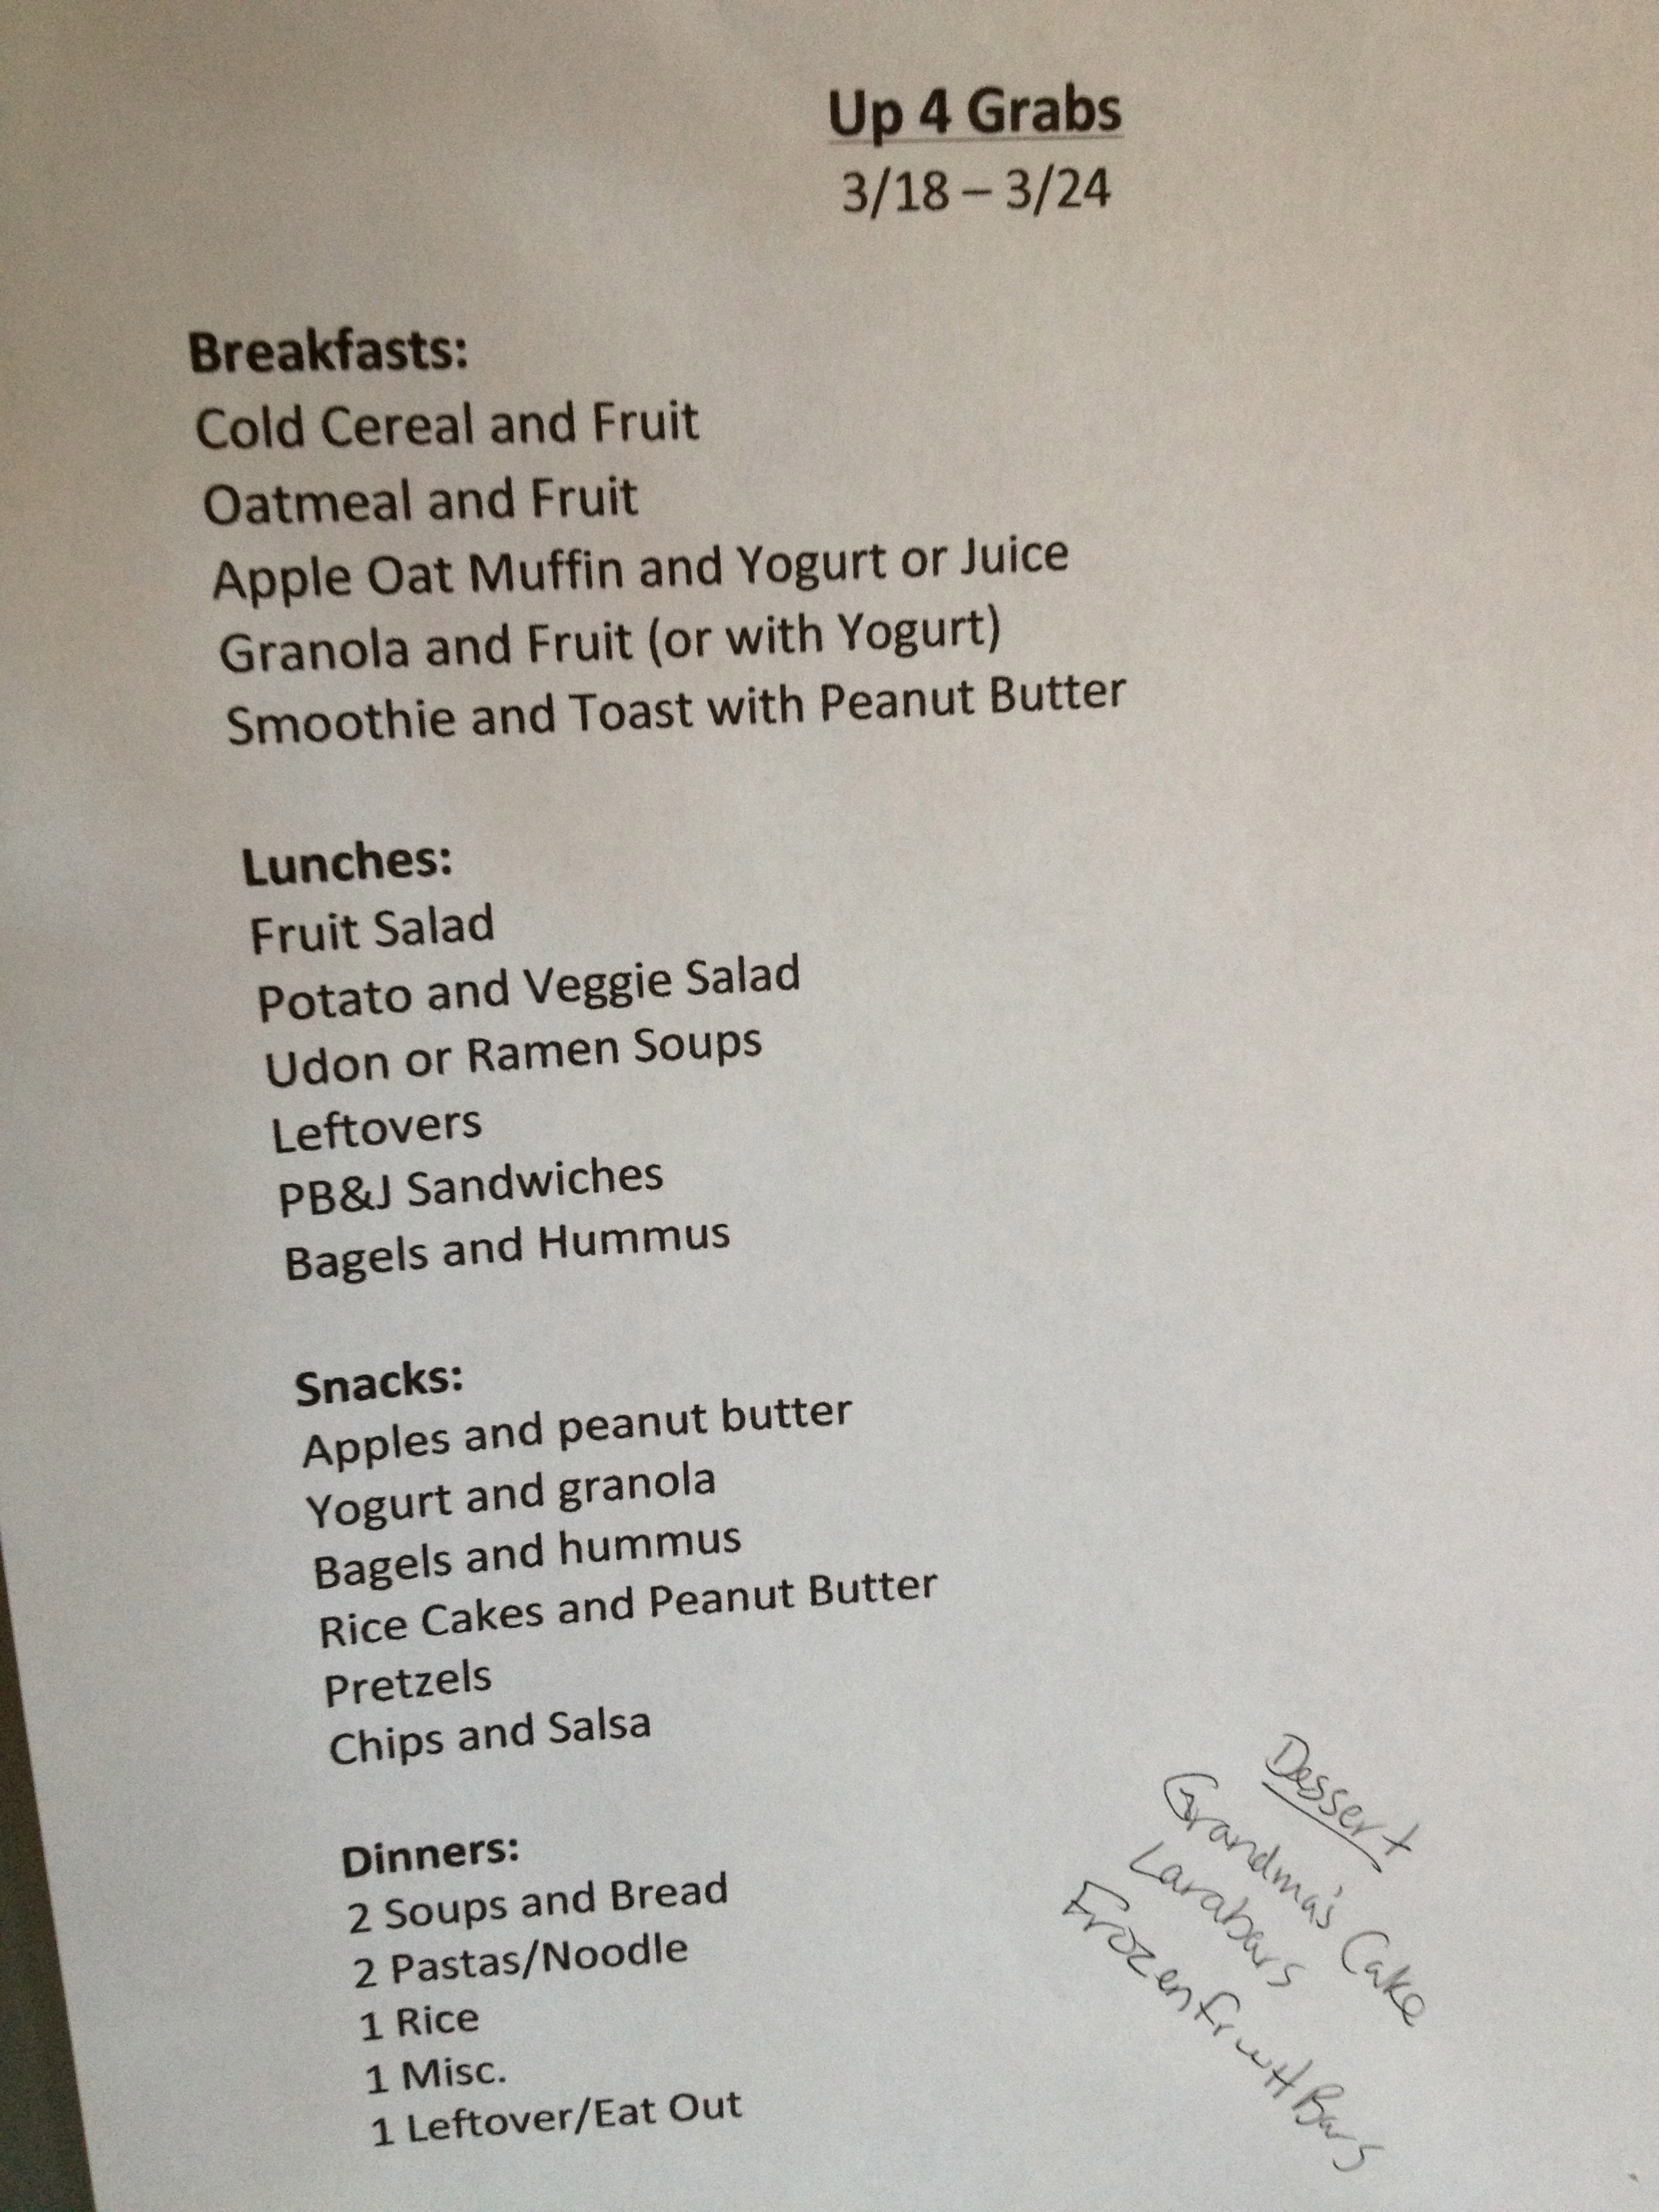 Up 4 Grabs
3/18 – 3/24
Breakfasts:
Cold Cereal and Fruit
Oatmeal and Fruit
Apple Oat Muffin and Yogurt or Juice
Granola and Fruit (or with Yogurt)
Smoothie and Toast with Peanut Butter
Lunches:
Fruit Salad
Potato and Veggie Salad
Udon or Ramen Soups
Leftovers
PB&J Sandwiches
Bagels and Hummus
Snacks:
Apples and peanut butter
Yogurt and granola
Bagels and hummus
Rice Cakes and Peanut Butter
Pretzels
Chips and Salsa
Dinners:
2 Soups and Bread
2 Pastas/Noodle
1 Rice
1 Misc.
1 Leftover/Eat Out
Dessert
Grandma's Cake
Larabars
Frozen fruit Bars